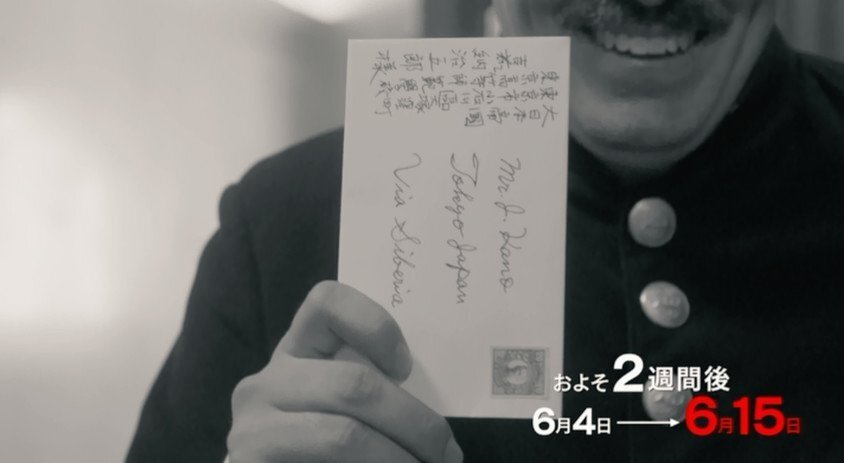 大日本帝國
東京市小石川區大塚窪町
東京高等師範學校
嘉納治五郎様
Mr. J. Kano
Tokyo Japan
Via Siberia
およそ2週間後
6月4日→6月15日